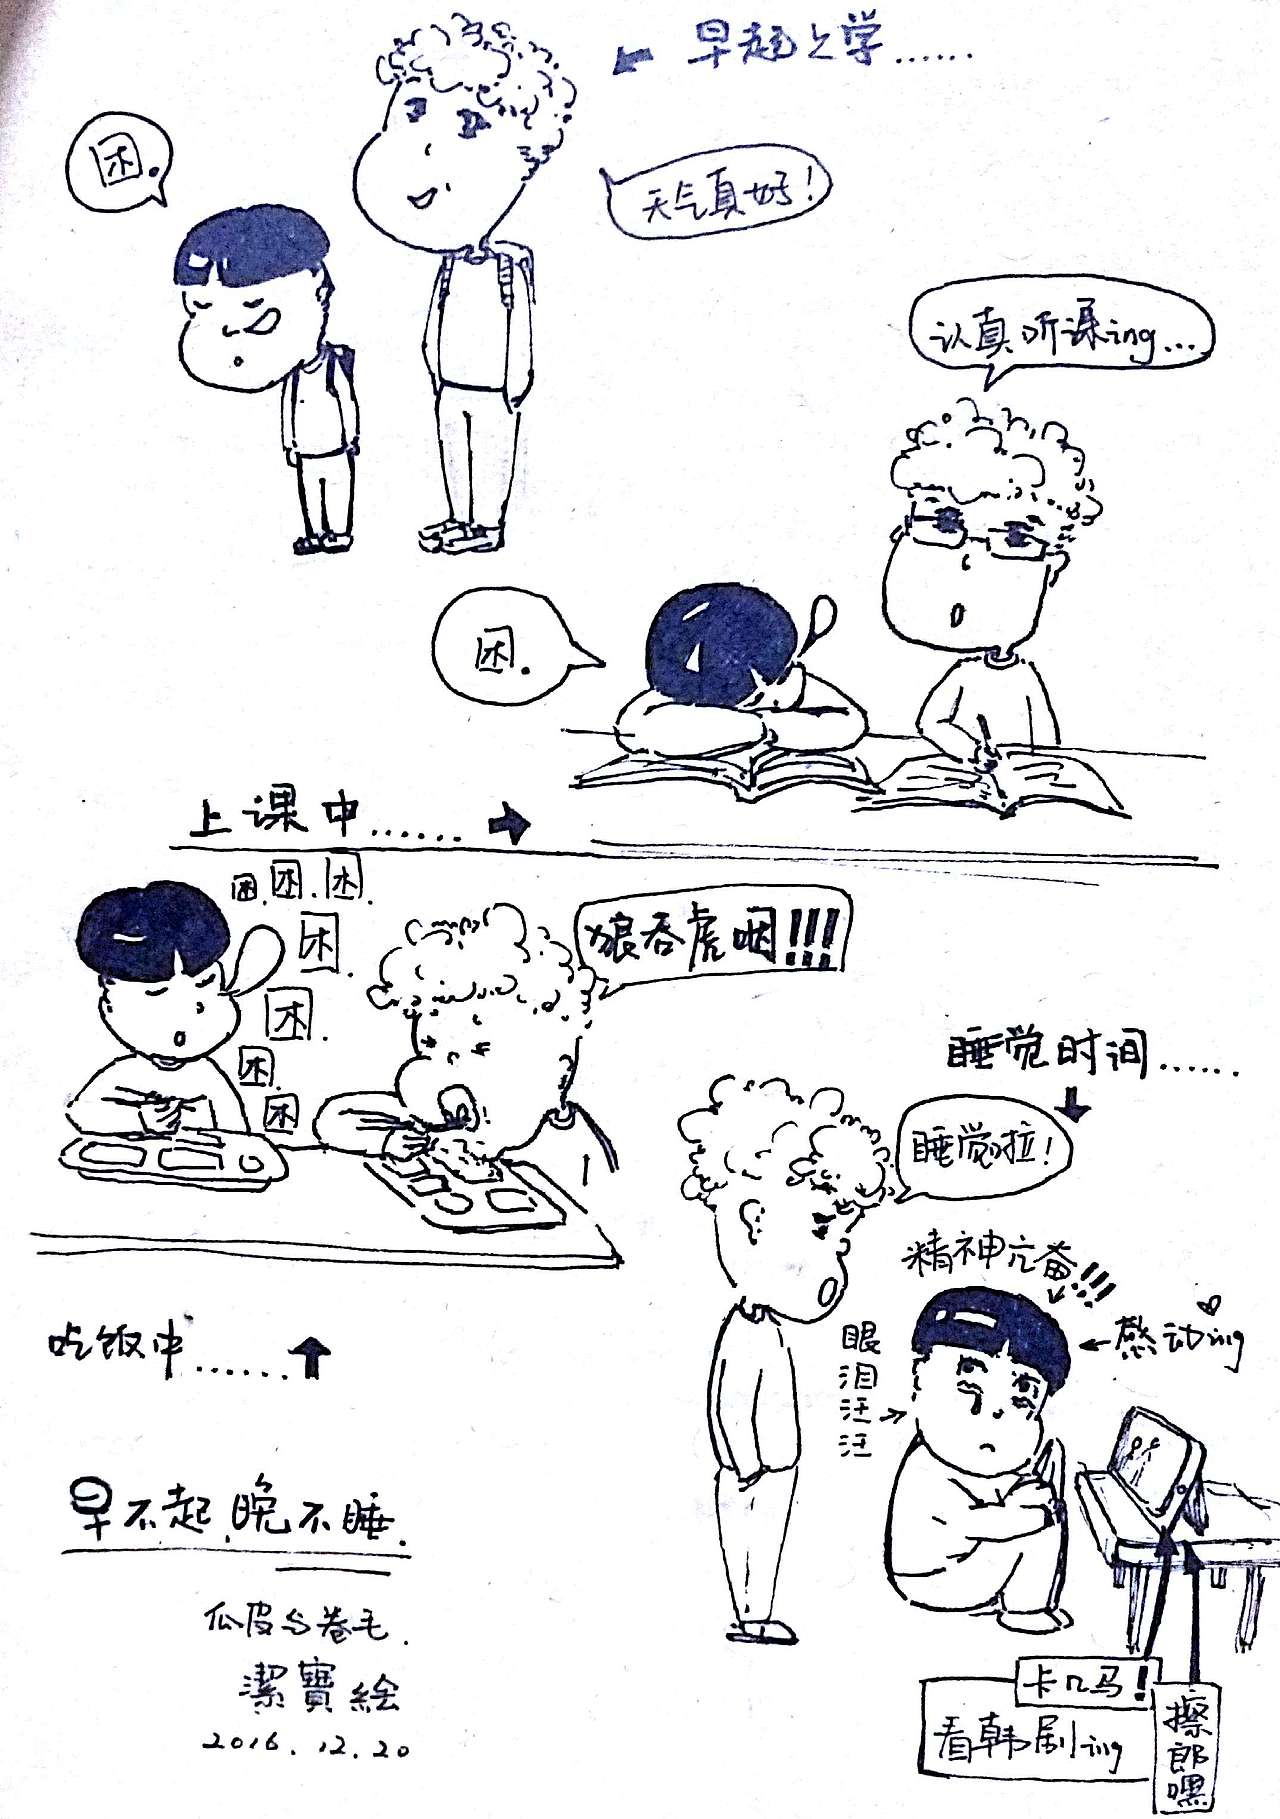 早起上学......
困.
天气真好！
认真听课ing...
困.
上课中......
困.困.困.
困.
困.
困.
困
狼吞虎咽!!!
睡觉时间......
睡觉啦！
精神亢奋!!!
感动ing
眼泪汪汪
吃饭中......
早不起,晚不睡.
瓜皮与卷毛.
潔寶絵
2016.12.20
卡几马！
看韩剧ing
擦郎嘿